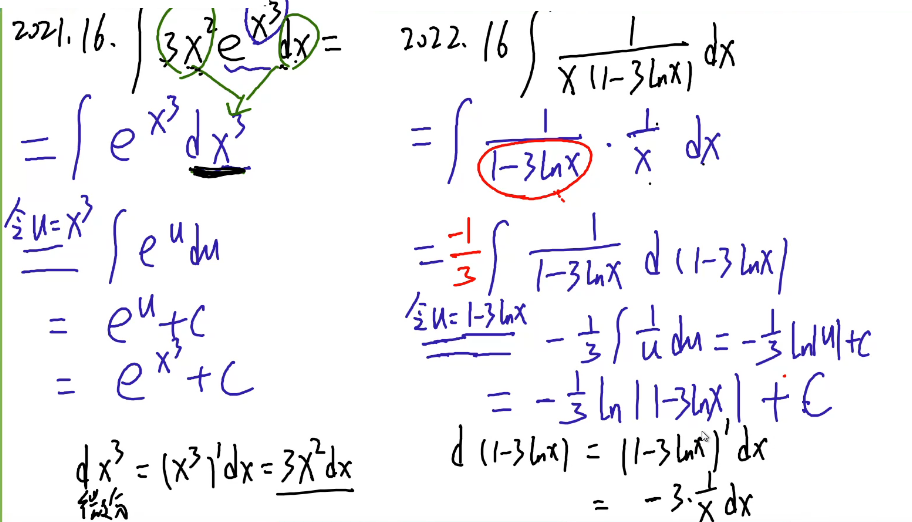 2021.16. ∫ 3x² e^{x³} dx =
= ∫ e^{x³} dx³
令u=x³ ∫ e^u du
= e^u + C
= e^{x³} + C
dx³ = (x³)' dx = 3x² dx
微分
2022.16 ∫ 1/(x(1-3lnx)) dx
= ∫ 1/(1-3lnx) · 1/x dx
= -1/3 ∫ 1/(1-3lnx) d(1-3lnx)
令u=1-3lnx -1/3 ∫ 1/u du = -1/3 ln|u| + C
= -1/3 ln|1-3lnx| + C
d(1-3lnx) = (1-3lnx)' dx
= -3·1/x dx